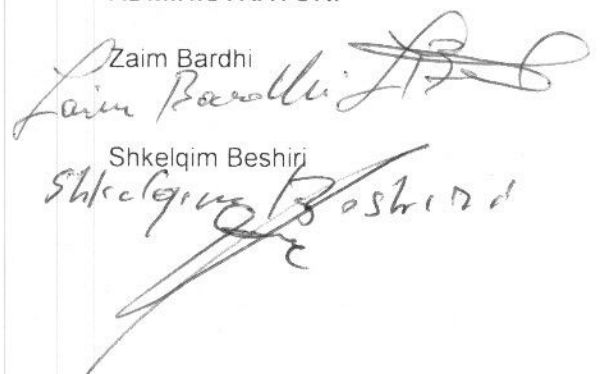 Zaim Bardhi
Zaim Bardhi
Shkelqim Beshiri
Shkelqim Beshiri